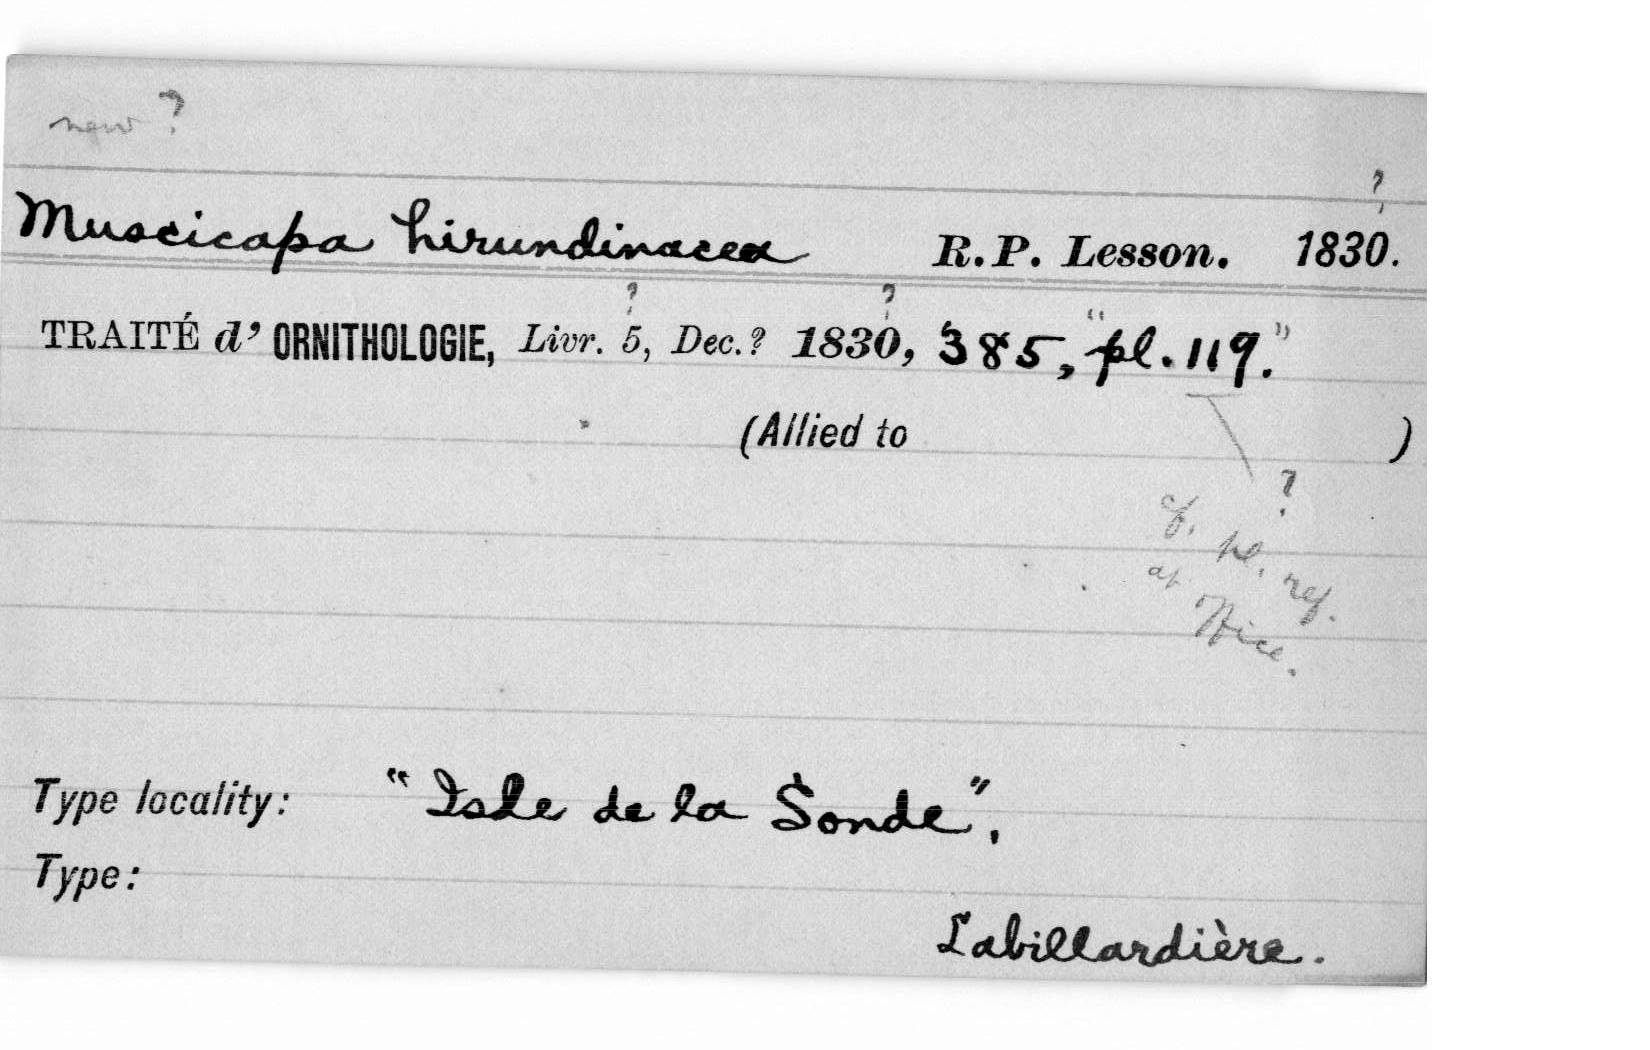 new ?
?
Muscicapa hirundinacea R.P. Lesson. 1830.
? ?
TRAITÉ d' ORNITHOLOGIE, Livr. 5, Dec.? 1830, 385, "pl. 119."
(Allied to )
?
cf. pl. ref.
ap. Hice.
Type locality: "Isle de la Sonde",
Type:
Labillardière.